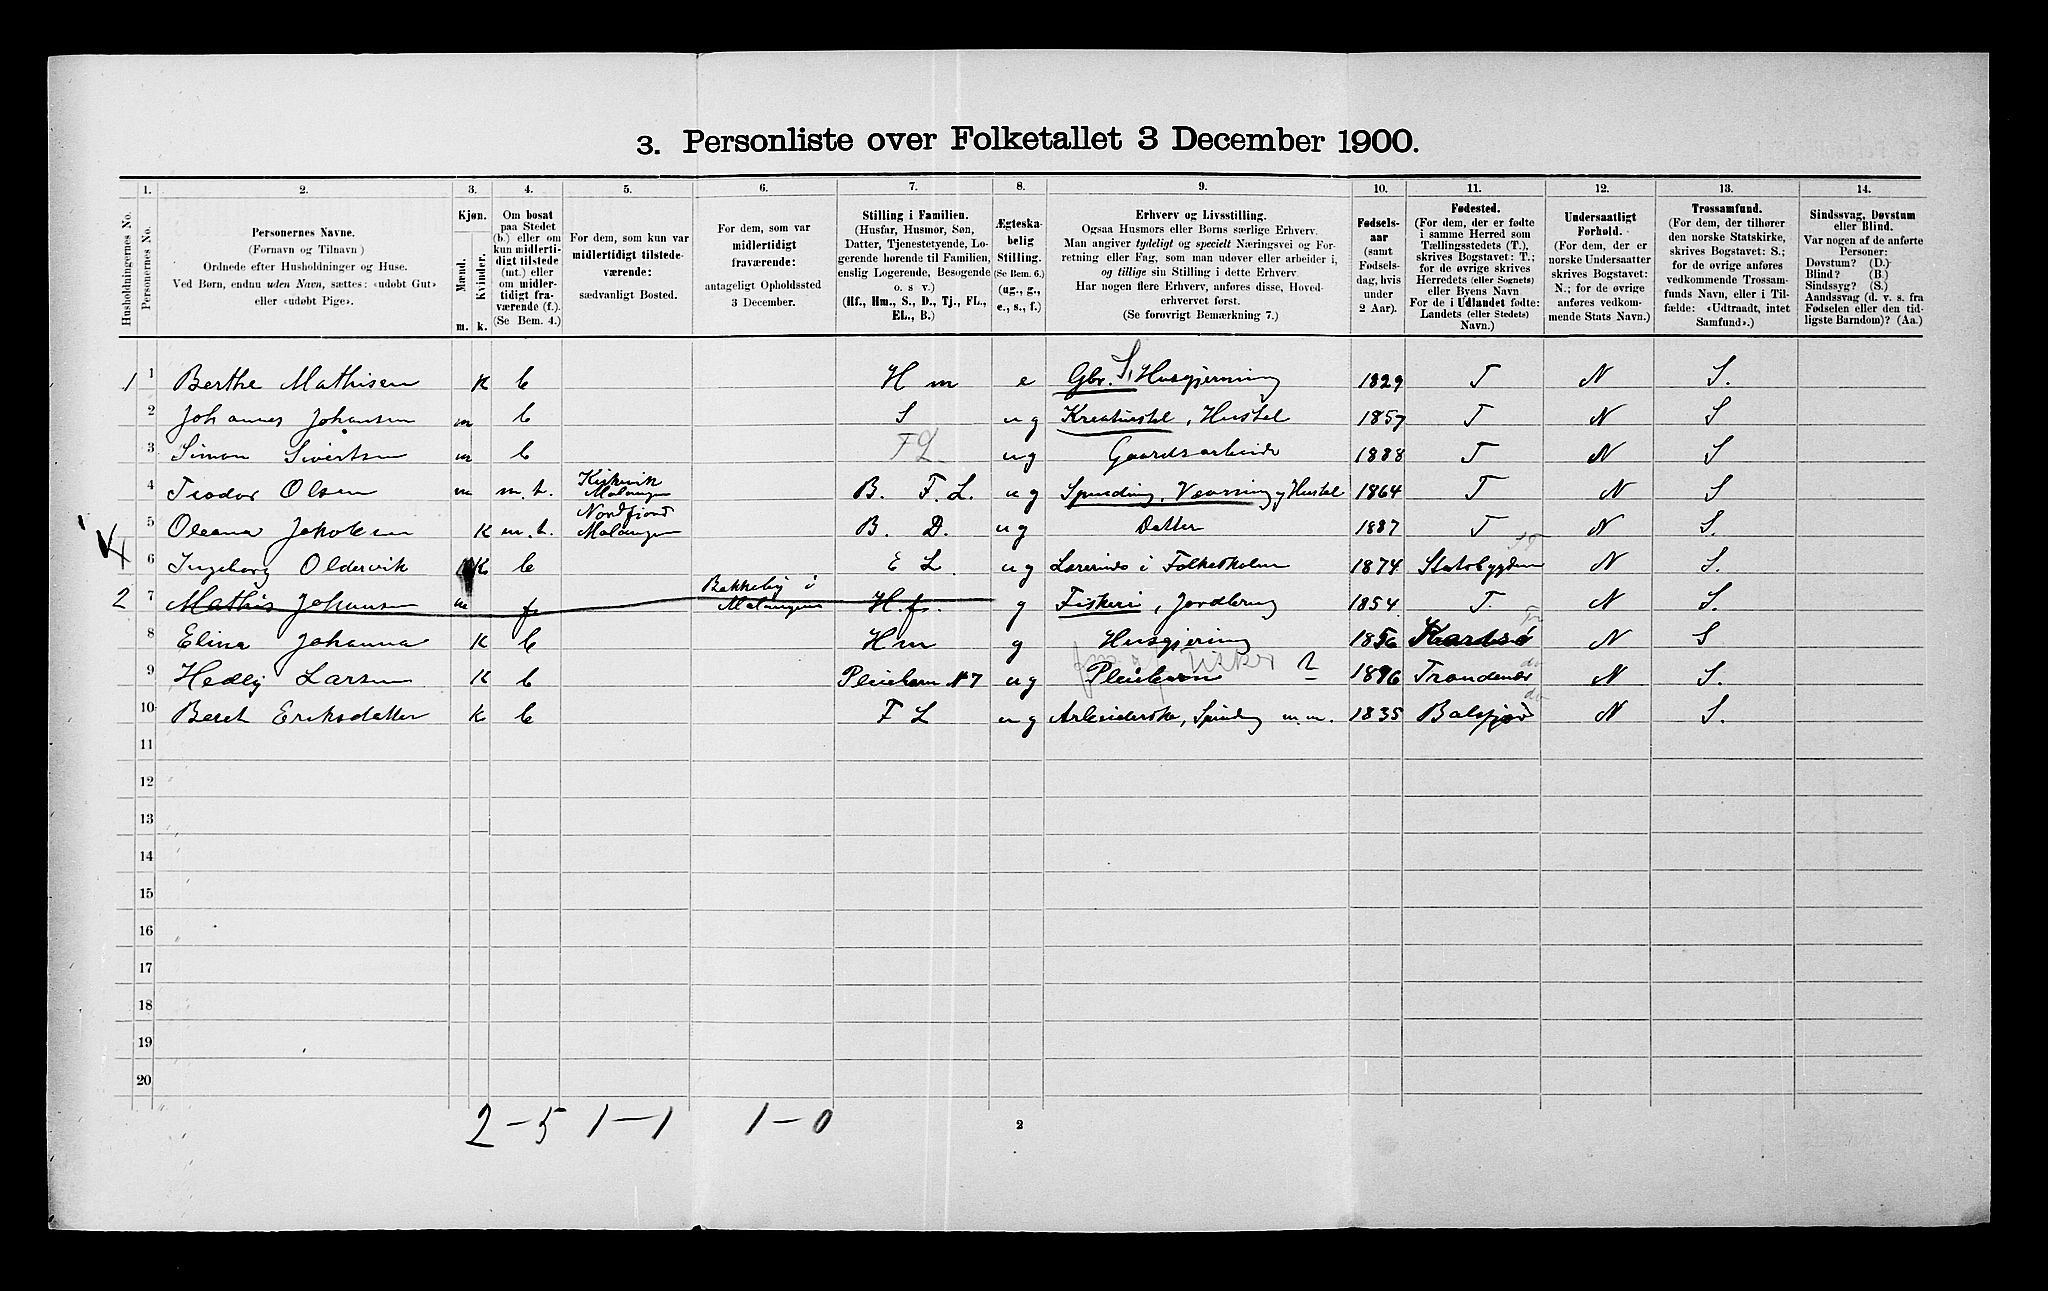 3. Personliste over Folketallet 3 December 1900.
1. 2. 3. 4. 5. 6. 7. 8. 9. 10. 11. 12. 13. 14.
Husholdningernes No.
Personernes No.
Personernes Navne.
(Fornavn og Tilnavn)
Ordnede efter Husholdninger og Huse.
Ved Børn, endnu uden Navn, sættes: «udøbt Gut»
eller «udøbt Pige».
Kjøn.
Mænd. Kvinder.
m. k.
Om bosat
paa Stedet
(b.) eller om
kun midlerti-
digt tilstede
(mt.) eller
om midler-
tidigt fra-
værende (f.).
(Se Bem. 4.)
For dem, som kun var
midlertidigt tilstede-
værende:
sædvanligt Bosted.
For dem, som var
midlertidigt
fraværende:
antageligt Opholdssted
3 December.
Stilling i Familien.
(Husfar, Husmor, Søn,
Datter, Tjenestetyende, Lo-
gerende hørende til Familien,
enslig Logerende, Besøgende
o. s v.)
(Hf., Hm., S., D., Tj., FL.,
EL., B.)
Ægteska-
belig
Stilling.
(Se Bem. 6.)
(ug., g.,
e., s., f.)
Erhverv og Livsstilling.
Ogsaa Husmors eller Børns særlige Erhverv.
Man angiver tydeligt og specielt Næringsvei og For-
retning eller Fag, som man udøver eller arbeider i,
og tillige sin Stilling i dette Erhverv.
Har nogen flere Erhverv, anføres disse, Hoved-
erhvervet først.
(Se forøvrigt Bemærkning 7.)
Fødsels-
aar
(samt
Fødsels-
dag, hvis
under
2 Aar).
Fødested.
(For dem, der er fødte
i samme Herred som
Tællingsstedets (T.),
skrives Bogstavet: T.;
for de øvrige skrives
Herredets (eller Sognets)
eller Byens Navn
For de i Udlandet fødte:
Landets (eller Stedets)
Navn.)
Undersaatligt
Forhold.
(For dem, der er
norske Undersaatter
skrives Bogstavet:
N.; for de øvrige
anføres vedkom-
mende Stats Navn.)
Trossamfund.
(For dem, der tilhører
den norske Statskirke,
skrives Bogstavet: S.;
for de øvrige anføres
vedkommende Trossam-
funds Navn, eller i Til-
fælde: «Udtraadt, intet
Samfund».)
Sindssvag, Døvstum
eller Blind.
Var nogen af de anførte
Personer:
Døvstum? (D.)
Blind? (B.)
Sindssyg? (S.)
Aandssvag (d. v. s. fra
Fødselen eller den tid-
ligste Barndom)? (Aa.)
1 1 Berthe Mathisen K b Hm e Gbr. S, Husgjerning 1829 T N S.
2 Johannes Johansen m b S ug Kreaturstel, Hustel 1857 T N S
3 Simon Sivertsen m b FL ug Gaardsarbeide 1888 T N S
4 Teodor Olsen m m.t. Malangen B. F. L. ug Spinding, Vævning og Hustel 1864 T N S
5 Oleana Jakobsen K m.t. Nordfjord Malangen B. D. ug Datter 1887 T N S.
6 Ingeborg Oldervik K b E L. ug Lærerinde i Folkeskolen 1874 Statsbygden N S.
2 7 Mathis Johansen m f Bakkeby i Malangen H.f. g Fiskeri, Jordbrug 1854 T. N S.
8 Elina Johanna K b Hm g Husgjering 1856 N S
9 Hedvig Larsen K b Pleiebarn N 7 ug Pleiebarn 2 1896 Trondenæs do N S.
10 Beret Eriksdatter K b F L ug Arbeiderske, Spinding m.m. 1835 Balsfjord do N S.
11
12
13
14
15
16
17
18
19
20
2-5 1-1 1-0
2